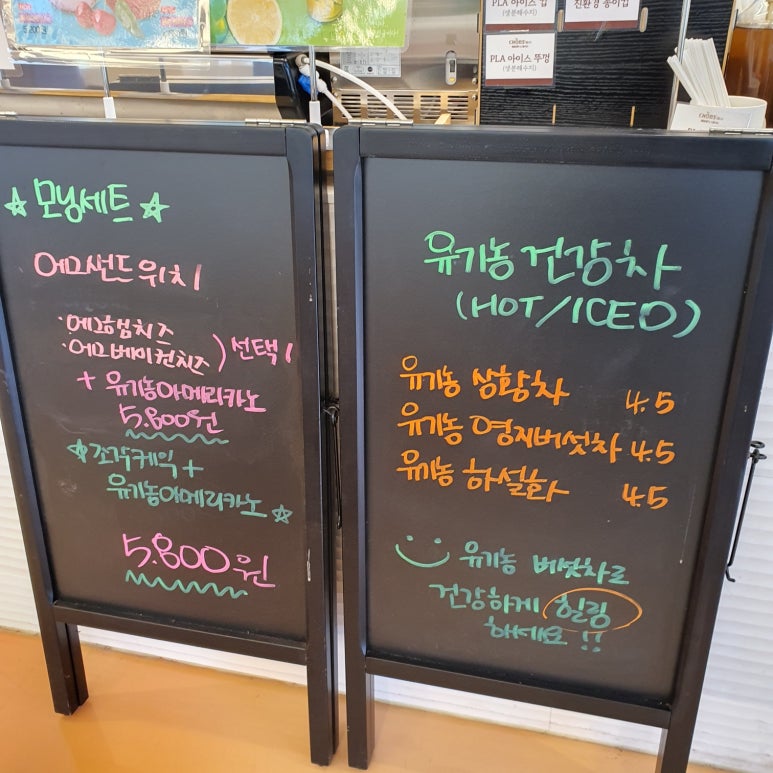 PLA 아이스 컵
(생분해수지)
친환경 종이컵
PLA 아이스 뚜껑
(생분해수지)
☆ 모닝세트 ☆
에그샌드위치
·에그햄치즈
·에그베이컨치즈 ) 선택1
+ 유기농아메리카노
5.800원
☆조각케익 +
유기농아메리카노☆
5.800원
유기농 건강차
(HOT/ICED)
유기농 상황차 4.5
유기농 영지버섯차 4.5
유기농 하설화 4.5
유기농 버섯차로
건강하게 힐링
하세요!!